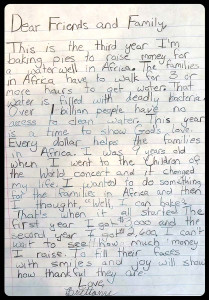 Dear Friends and Family,
This is the third year I'm
baking pies to raise money for
a water well in Africa. The families
in Africa have to walk for 3 or
more hours to get water. That
water is filled with deadly bacteria.
Over 1 billion people have no
access to clean water. This year
is a time to show God's love.
Every dollar helps the families
in Africa. I was 7 years old
when I went to the Children of
the World concert and it changed
my life. I wanted to do something
for the families in Africa and then
I thought, "Well, I can bake".
That's when it all started. The
first year I got $ 000 and the
second year I got $2,600. I can't
wait to see how much money
I raise. I fill their faces
with smiles and joy will show
how thankful they are.
Love,